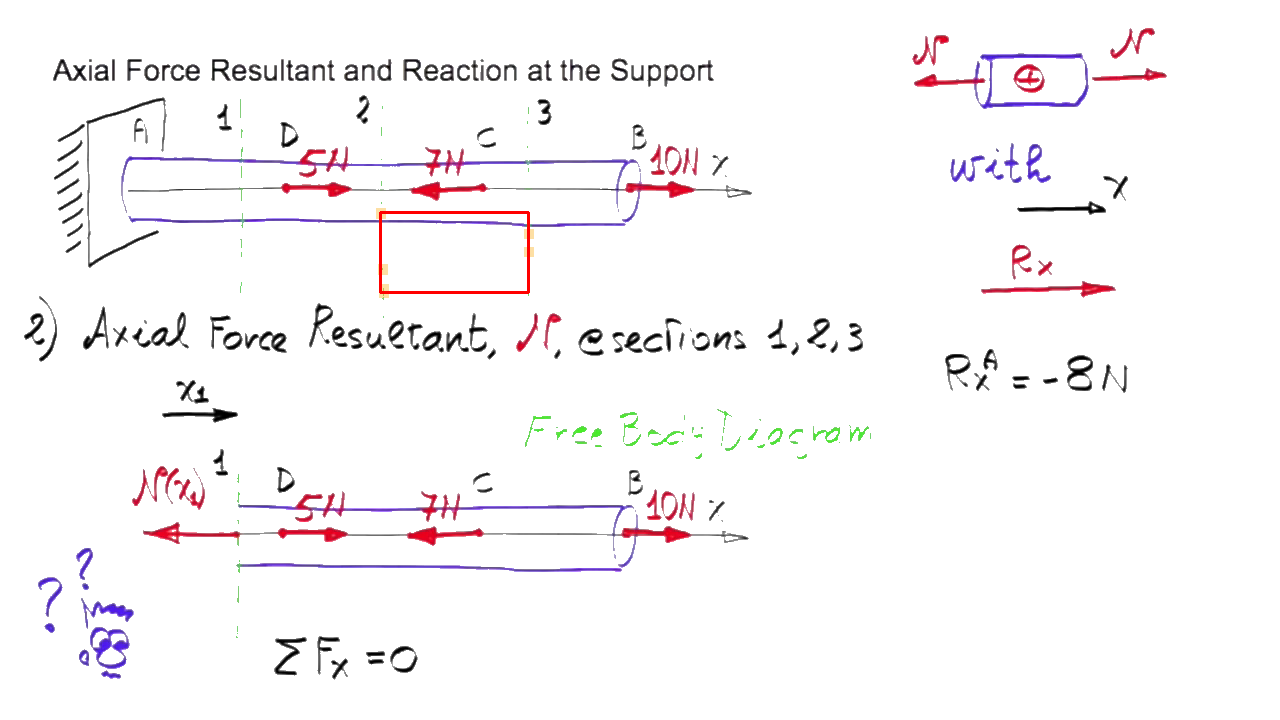 Axial Force Resultant and Reaction at the Support
N N
+
A 1 D 2 C 3 B
5N 7N 10N x
with
x
Rx
2) Axial Force Resultant, N, @sections 1,2,3
RxA = -8N
x1
Free Body Diagram
N(x1) 1 D 5N 7N C B 10N x
? ?
ΣFx = 0